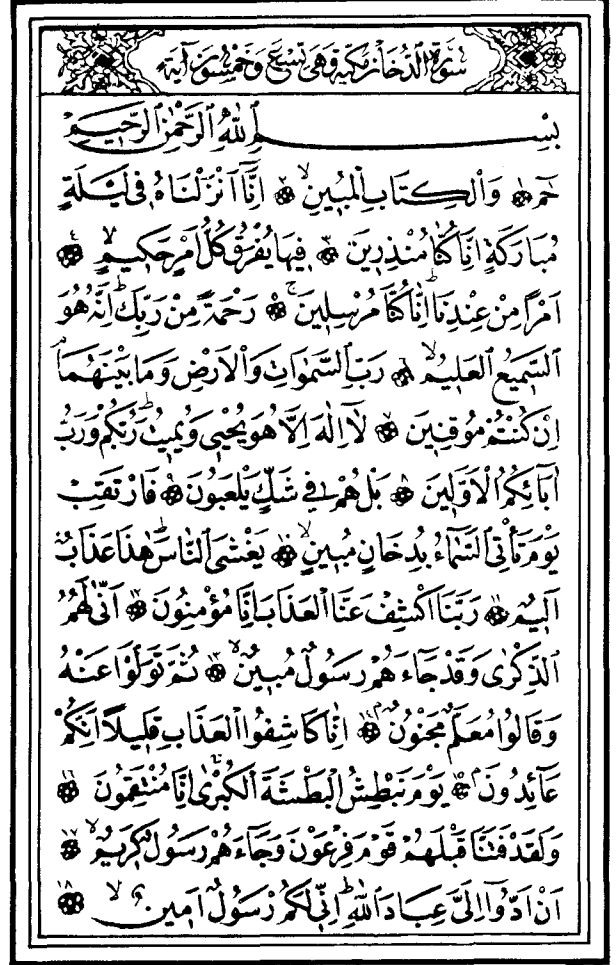 سُورَةُ الدُّخَانِ مَكِّيَّةٌ وَهِيَ تِسْعٌ وَخَمْسُونَ آيَةً
بِسْمِ ٱللّٰهِ ٱلرَّحْمٰنِ ٱلرَّحِيمِ
حٰمٓ ﴿١﴾ وَٱلْكِتَابِ ٱلْمُبِينِۙ ﴿٢﴾ اِنَّٓا اَنْزَلْنَاهُ فِى لَيْلَةٍ
مُبَارَكَةٍ اِنَّا كُنَّا مُنْذِرِينَ ﴿٣﴾ فِيهَا يُفْرَقُ كُلُّ اَمْرٍ حَكِيمٍۙ ﴿٤﴾
اَمْرًا مِنْ عِنْدِنَاۜ اِنَّا كُنَّا مُرْسِلِينَۚ ﴿٥﴾ رَحْمَةً مِنْ رَبِّكَۜ اِنَّهُ هُوَ
ٱلسَّمِيعُ ٱلْعَلِيمُۙ ﴿٦﴾ رَبِّ ٱلسَّمٰوَاتِ وَٱلْاَرْضِ وَمَا بَيْنَهُمَاۢ
اِنْ كُنْتُمْ مُوقِنِينَ ﴿٧﴾ لَٓا اِلٰهَ اِلَّا هُوَ يُحْيِى وَيُمِيتُۜ رَبُّكُمْ وَرَبُّ
اٰبَٓائِكُمُ ٱلْاَوَّلِينَ ﴿٨﴾ بَلْ هُمْ فِى شَكٍّ يَلْعَبُونَ ﴿٩﴾ فَارْتَقِبْ
يَوْمَ تَأْتِى ٱلسَّمَٓاءُ بِدُخَانٍ مُبِينٍۙ ﴿١٠﴾ يَغْشَى ٱلنَّاسَۜ هٰذَا عَذَابٌ
اَلِيمٌ ﴿١١﴾ رَبَّنَا ٱكْشِفْ عَنَّا ٱلْعَذَابَ اِنَّا مُؤْمِنُونَ ﴿١٢﴾ اَنّٰى لَهُمُ
ٱلذِّكْرٰى وَقَدْ جَٓاءَهُمْ رَسُولٌ مُبِينٌۙ ﴿١٣﴾ ثُمَّ تَوَلَّوْا عَنْهُ
وَقَالُوا مُعَلَّمٌ مَجْنُونٌۢ ﴿١٤﴾ اِنَّا كَاشِفُوا ٱلْعَذَابِ قَلِيلًا اِنَّكُمْ
عَٓائِدُونَۢ ﴿١٥﴾ يَوْمَ نَبْطِشُ ٱلْبَطْشَةَ ٱلْكُبْرٰىۚ اِنَّا مُنْتَقِمُونَ ﴿١٦﴾
وَلَقَدْ فَتَنَّا قَبْلَهُمْ قَوْمَ فِرْعَوْنَ وَجَٓاءَهُمْ رَسُولٌ كَرِيمٌۙ ﴿١٧﴾
اَنْ اَدُّٓوا اِلَىَّ عِبَادَ ٱللّٰهِۜ اِنِّى لَكُمْ رَسُولٌ اَمِينٌۙ ﴿١٨﴾